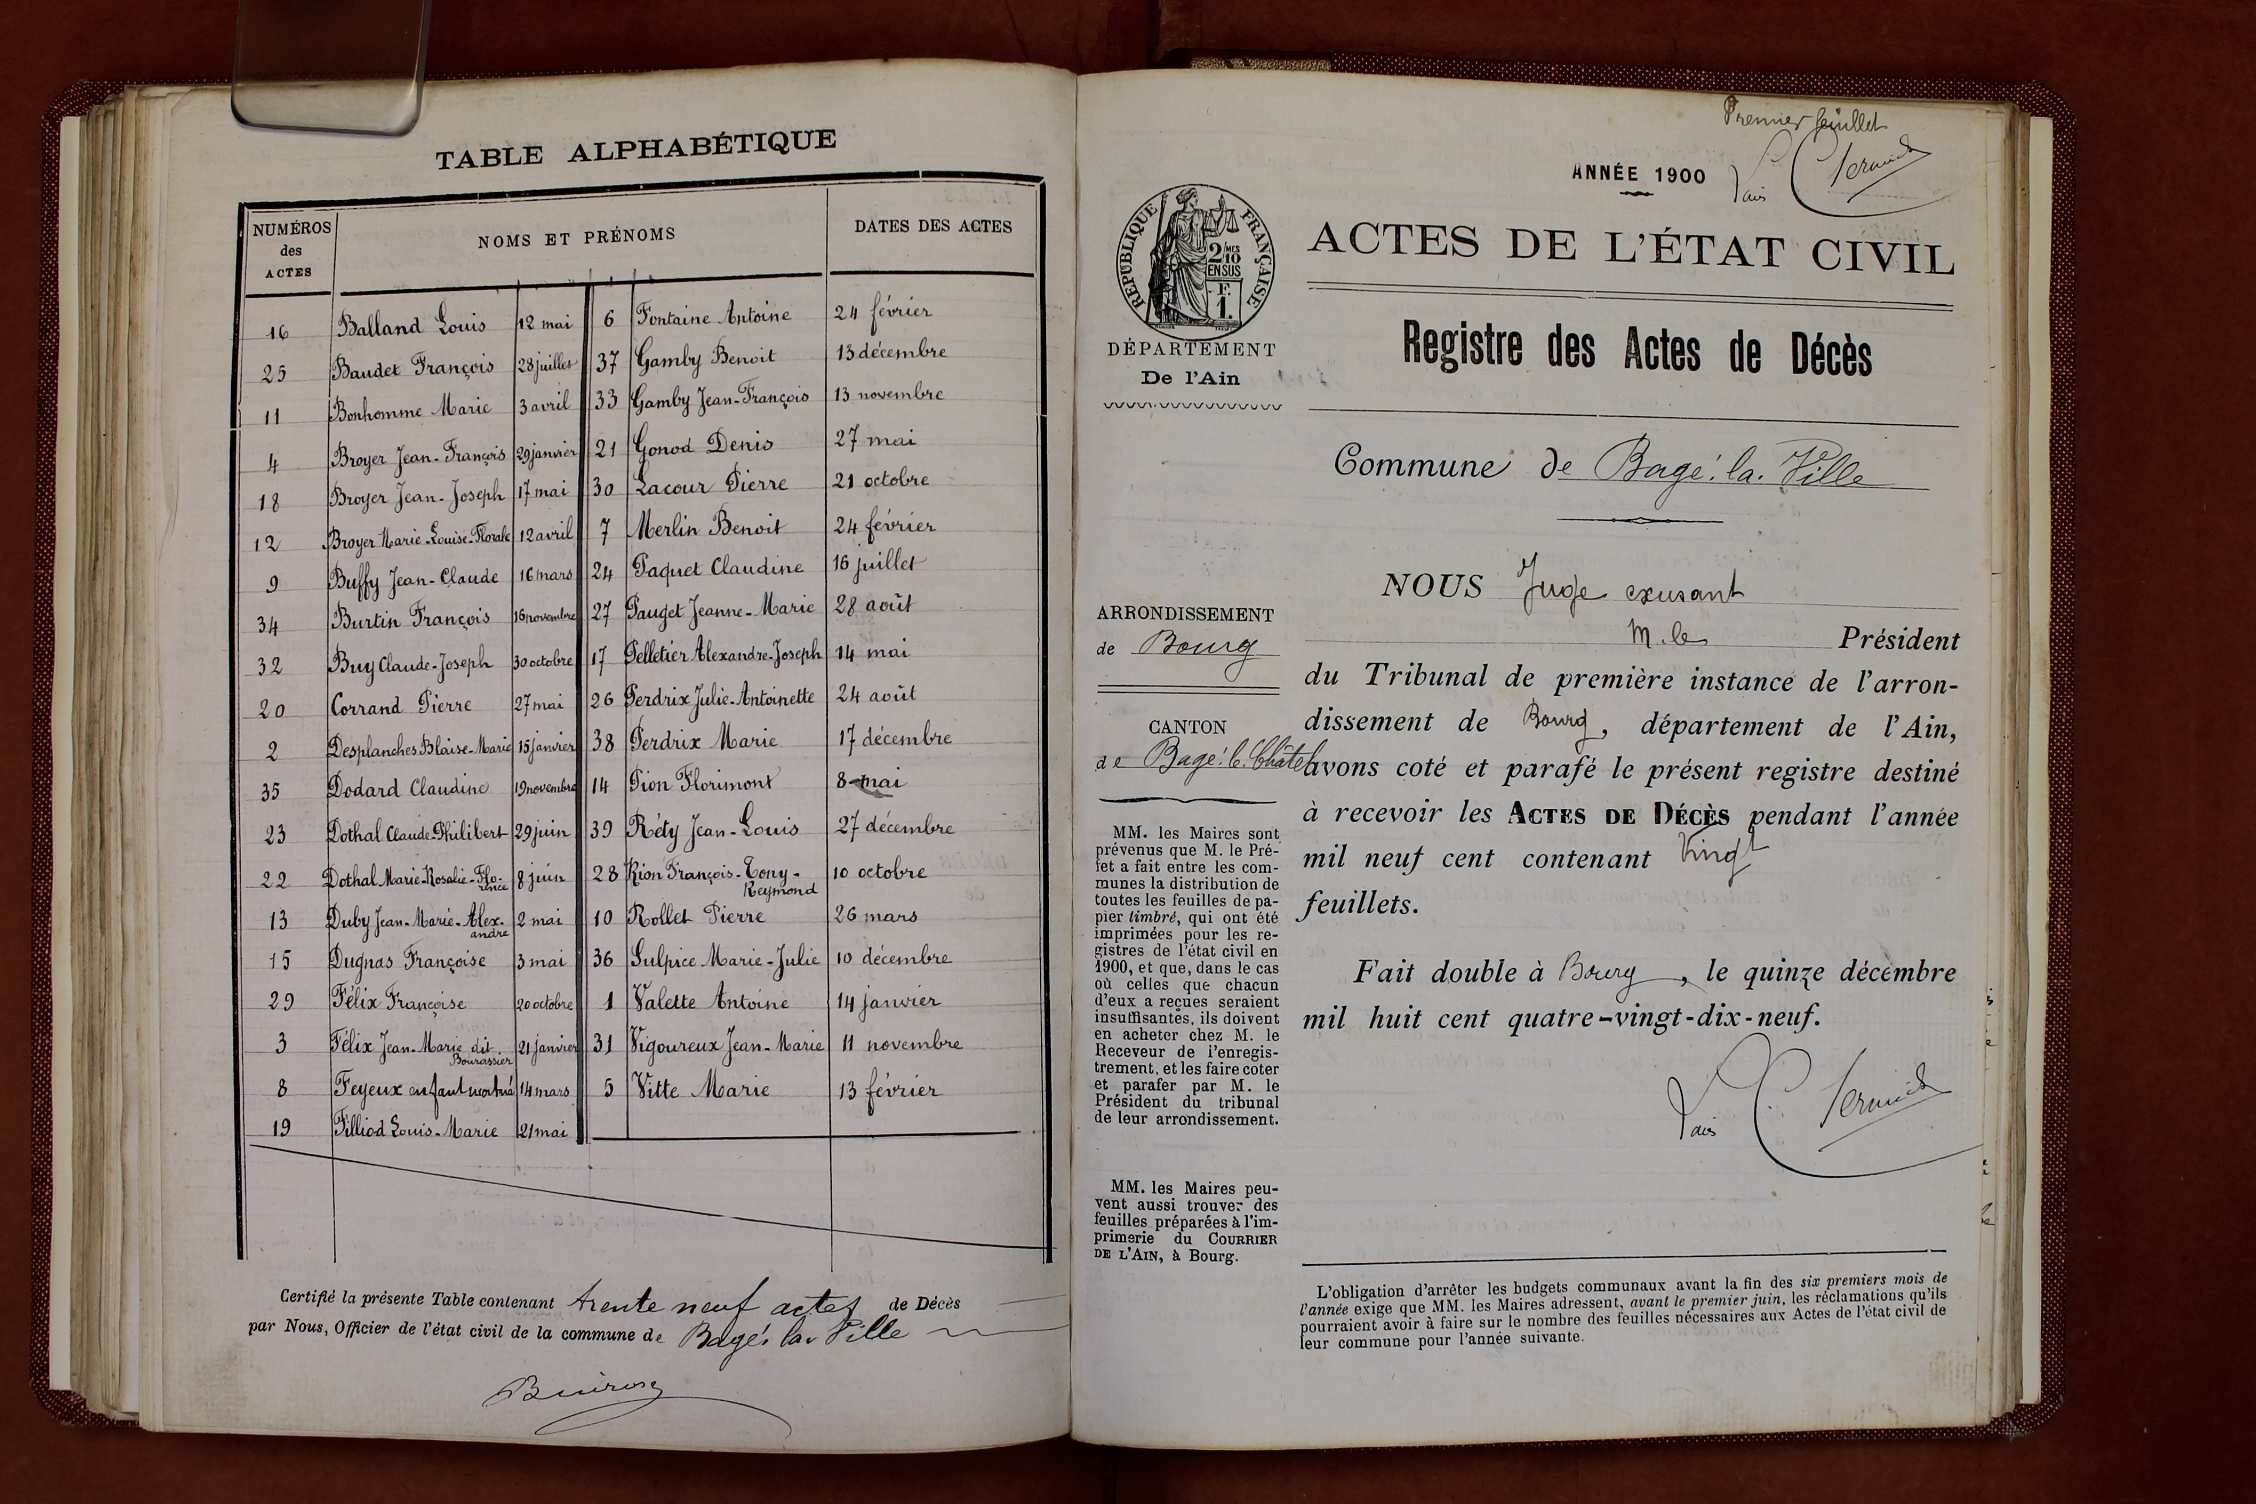 TABLE ALPHABÉTIQUE
NUMÉROS des ACTES
NOMS ET PRÉNOMS
DATES DES ACTES
16 Balland Louis 12 mai
25 Baudet François 28 juillet
11 Bonhomme Marie 3 avril
4 Broyer Jean-François 29 janvier
18 Broyer Jean-Joseph 17 mai
12 Broyer Marie-Louise-Florale 12 avril
9 Buffy Jean-Claude 16 mars
34 Burtin François 16 novembre
32 Buy Claude-Joseph 30 octobre
20 Corrand Pierre 27 mai
2 Desplanches Blaise-Marie 15 janvier
35 Dodard Claudine 19 novembre
23 Dothal Claude-Philibert 29 juin
22 Dothal Marie-Rosalie-Flo-
rence 8 juin
13 Duby Jean-Marie-Alex-
andre 2 mai
15 Dugnas Françoise 3 mai
29 Félix Françoise 20 octobre
3 Félix Jean-Marie dit
Bourassier 21 janvier
8 Feyeux enfant mort né 14 mars
19 Filliod Louis-Marie 21 mai
6 Fontaine Antoine 24 février
37 Gamby Benoit 13 décembre
33 Gamby Jean-François 13 novembre
21 Gonod Denis 27 mai
30 Lacour Pierre 21 octobre
7 Merlin Benoit 24 février
24 Paquet Claudine 16 juillet
27 Pauget Jeanne-Marie 28 août
17 Pelletier Alexandre-Joseph 14 mai
26 Perdrix Julie-Antoinette 24 août
38 Perdrix Marie 17 décembre
14 Pion Florimont 8 mai
39 Réty Jean-Louis 27 décembre
28 Rion François-Tony-
Reymond 10 octobre
10 Rollet Pierre 26 mars
36 Sulpice Marie-Julie 10 décembre
1 Valette Antoine 14 janvier
31 Vigoureux Jean-Marie 11 novembre
5 Vitte Marie 13 février
Certifié la présente Table contenant trente neuf actes de Décès
par Nous, Officier de l'état civil de la commune de Bagé-la-Ville
Premier feuillet
ANNÉE 1900
RÉPUBLIQUE FRANÇAISE
2/10 MES
EN SUS
F.
1.
DÉPARTEMENT
De l'Ain
ACTES DE L'ÉTAT CIVIL
Registre des Actes de Décès
Commune de Bagé-la-Ville
ARRONDISSEMENT
de Bourg
CANTON
de Bagé-le-Châtel
MM. les Maires sont
prévenus que M. le Pré-
fet a fait entre les com-
munes la distribution de
toutes les feuilles de pa-
pier timbré, qui ont été
imprimées pour les re-
gistres de l'état civil en
1900, et que, dans le cas
où celles que chacun
d'eux a reçues seraient
insuffisantes, ils doivent
en acheter chez M. le
Receveur de l'enregis-
trement, et les faire coter
et parafer par M. le
Président du tribunal
de leur arrondissement.
MM. les Maires peu-
vent aussi trouver des
feuilles préparées à l'im-
primerie du COURRIER
DE L'AIN, à Bourg.
NOUS Juge
M. le Président
du Tribunal de première instance de l'arron-
dissement de Bourg, département de l'Ain,
avons coté et parafé le présent registre destiné
à recevoir les ACTES DE DÉCÈS pendant l'année
mil neuf cent contenant Vingt
feuillets.
Fait double à Bourg, le quinze décembre
mil huit cent quatre-vingt-dix-neuf.
L'obligation d'arrêter les budgets communaux avant la fin des six premiers mois de
l'année exige que MM. les Maires adressent, avant le premier juin, les réclamations qu'ils
pourraient avoir à faire sur le nombre des feuilles nécessaires aux Actes de l'état civil de
leur commune pour l'année suivante.